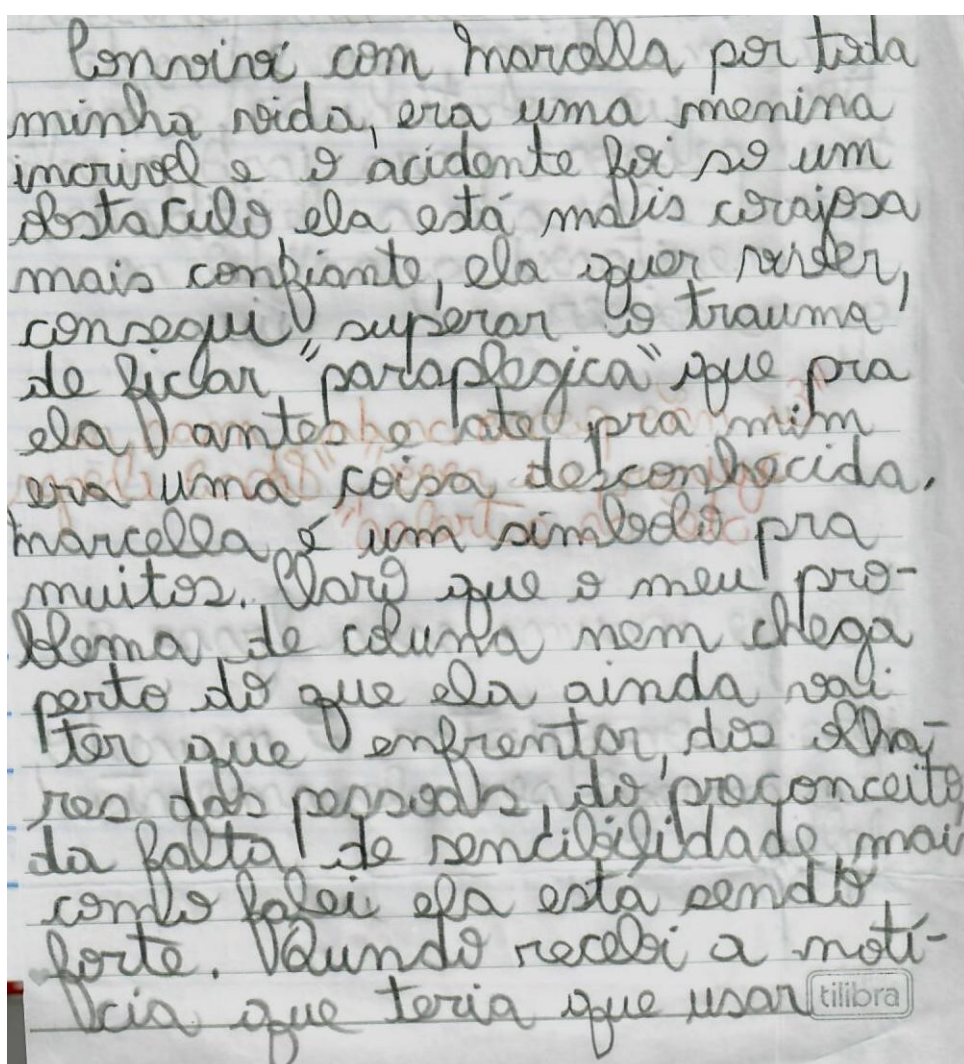 Convivi com Marcella por toda
minha vida, era uma menina
incrivel e o acidente foi so um
obstaculo ela está mais corajosa
mais confiante, ela quer viver,
consegui superar o trauma
de ficar "paraplegica" que pra
ela antes e ate pra mim
era uma coisa desconhecida.
Marcella é um simbolo pra
muitos. Claro que o meu pro-
blema de coluna nem chega
perto do que ela ainda vai
ter que enfrentar, dos olha-
res das pessoas, do preconceito
da falta de sencibilidade mais
como falei ela está sendo
forte. Quando recebi a noti-
cia que teria que usar
tilibra